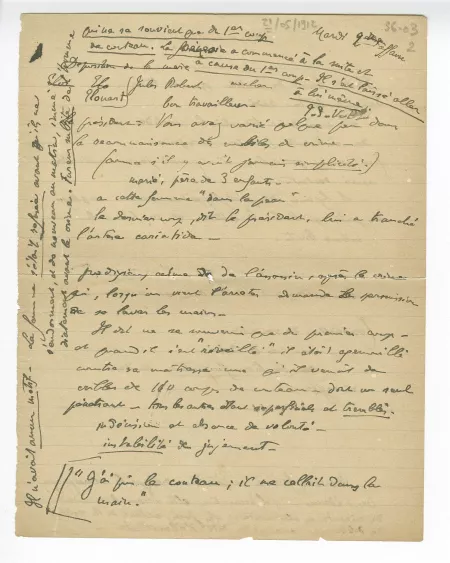 qui ne se souvient que du 1er coup
21/05/1912
Mardi
36-03
2
de couteau. La a commencé à la suite et
à cause du 1er coup - Il s'est laissé aller
Déposition de la mère
à lui même
Jules Robert
bon travailleur
président : Vous avez varié quelque peu dans
la reconnaissance du mobile du crime -
(comme s'il y avait jamais simplicité.)
marié, père de 3 enfants -
a cette femme "dans la peau"
le dernier coup, dit le président, lui a tranché
l'artère carotide -
prodigieux calme de l'assassin, après le crime
qui, lorsqu'on vient l'arrêter demande la permission
de se laver les mains -
Il dit ne se souvenir que du premier coup -
et quand il s'est "réveillé" il était agenouillé
contre sa maîtresse qu'il venait de
cribler de 110 coups de couteau - dont un seul
pénétrant - tous les autres étant superficiels et tremblés.
indécision et absence de volonté -
instabilité de jugement -
"J'ai pris le couteau ; il me collait dans la
main."
Il n'avait aucun motif - La femme s'était refusée avant qu'il ne
s'endormît, et de nouveau au matin,
immédiatement avant le crime.